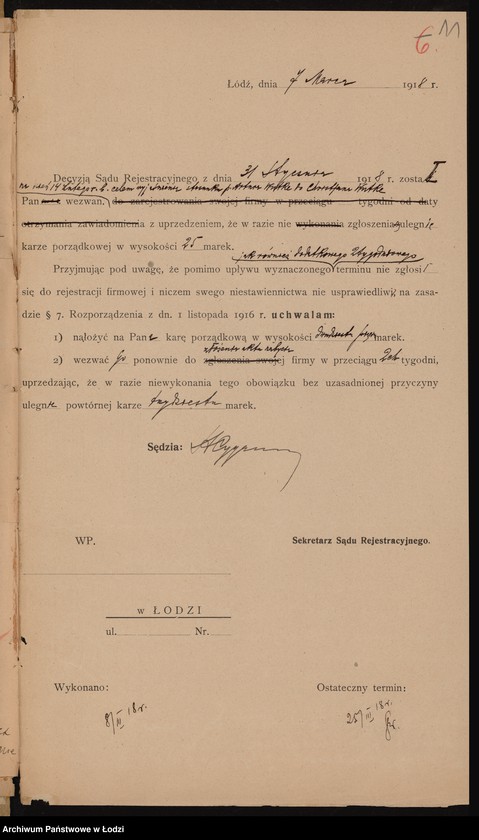 6. 11
Łódź, dnia 7 Marca 1918 r.
Decyzją Sądu Rejestracyjnego z dnia 31 Stycznia 1918 r. został
na dzień 14 Lutego r. b. celem wyjaśnienia stosunku p. Artura Wittke do Chrestjana Wittke
Pan wezwan do zarejestrowania swojej firmy w przeciągu tygodni od daty
otrzymania zawiadomienia z uprzedzeniem, że w razie nie wykonania zgłoszenia ulegnie
karze porządkowej w wysokości 25 marek.
jak również dodatkowego
Przyjmując pod uwagę, że pomimo upływu wyznaczonego terminu nie zgłosił
się do rejestracji firmowej i niczem swego niestawiennictwa nie usprawiedliwił, na zasa-
dzie § 7. Rozporządzenia z dn. 1 listopada 1916 r. uchwalam:
1) nałożyć na Pana karę porządkową w wysokości marek.
2) wezwać go ponownie do zgłoszenia swojej firmy w przeciągu tygodni,
uprzedzając, że w razie niewykonania tego obowiązku bez uzasadnionej przyczyny
ulegnie powtórnej karze trzydziestu marek.
Sędzia:
WP.
Sekretarz Sądu Rejestracyjnego.
w ŁODZI
ul. Nr.
Wykonano:
Ostateczny termin:
8/III 18 r.
25/III 18 r.
Archiwum Państwowe w Łodzi